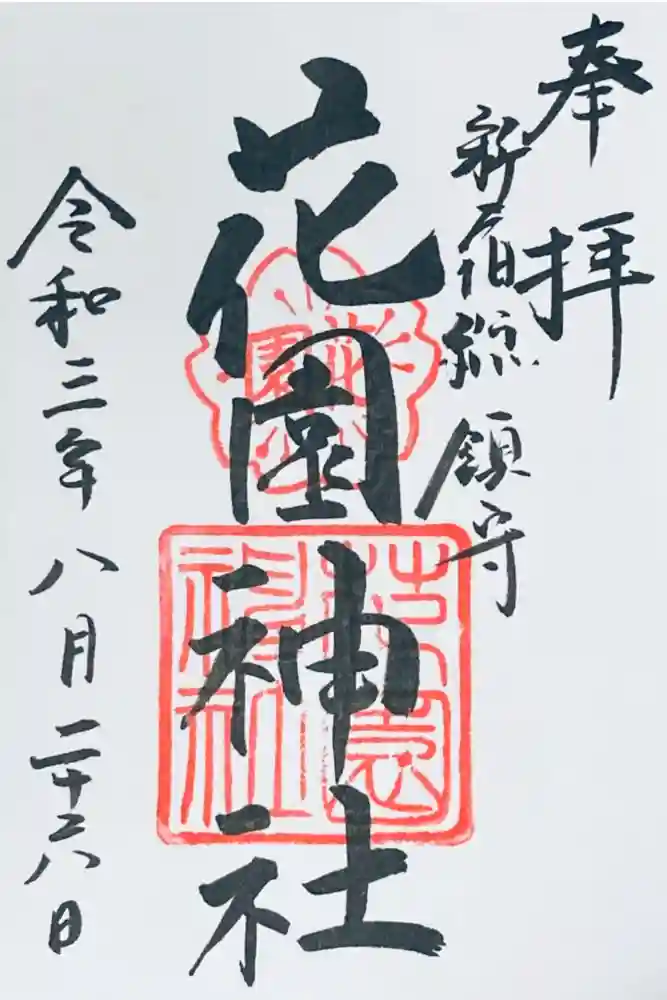 奉拝
新宿総鎮守
花園神社
花園
花園神社
令和三年八月二十六日